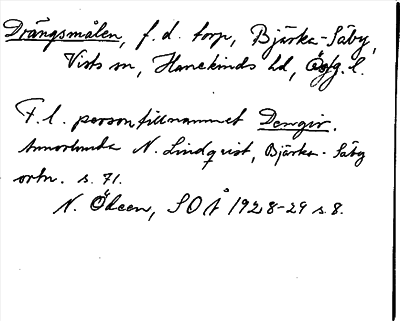 Drängsmålen, f.d. torp, Bjärka-Säby,
Vists sn, Hanekinds hd, Ög. l.
F.l. persontillnamnet Dengir.
Annorlunda N. Lindqvist, Bjärka-Säby
ortn. s. 71.
N. Ödeen, SOÅ 1928-29 s. 8.